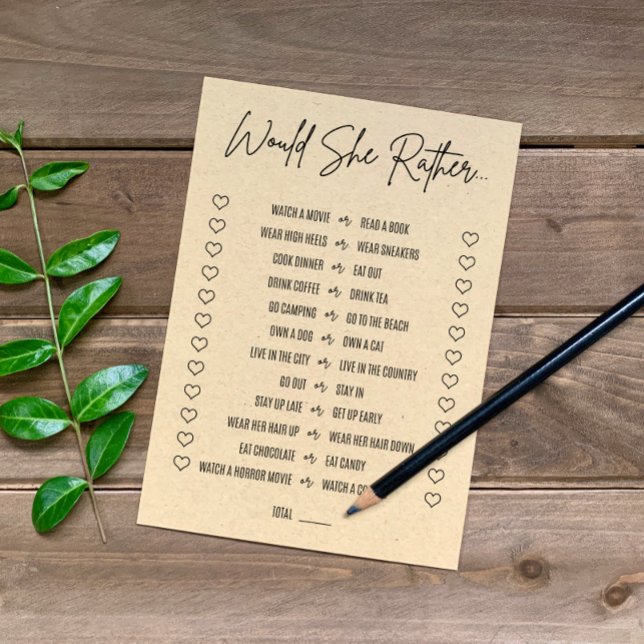 Would She Rather...
WATCH A MOVIE or READ A BOOK
WEAR HIGH HEELS or WEAR SNEAKERS
COOK DINNER or EAT OUT
DRINK COFFEE or DRINK TEA
GO CAMPING or GO TO THE BEACH
OWN A DOG or OWN A CAT
LIVE IN THE CITY or LIVE IN THE COUNTRY
GO OUT or STAY IN
STAY UP LATE or GET UP EARLY
WEAR HER HAIR UP or WEAR HER HAIR DOWN
EAT CHOCOLATE or EAT CANDY
WATCH A HORROR MOVIE or WATCH A
TOTAL